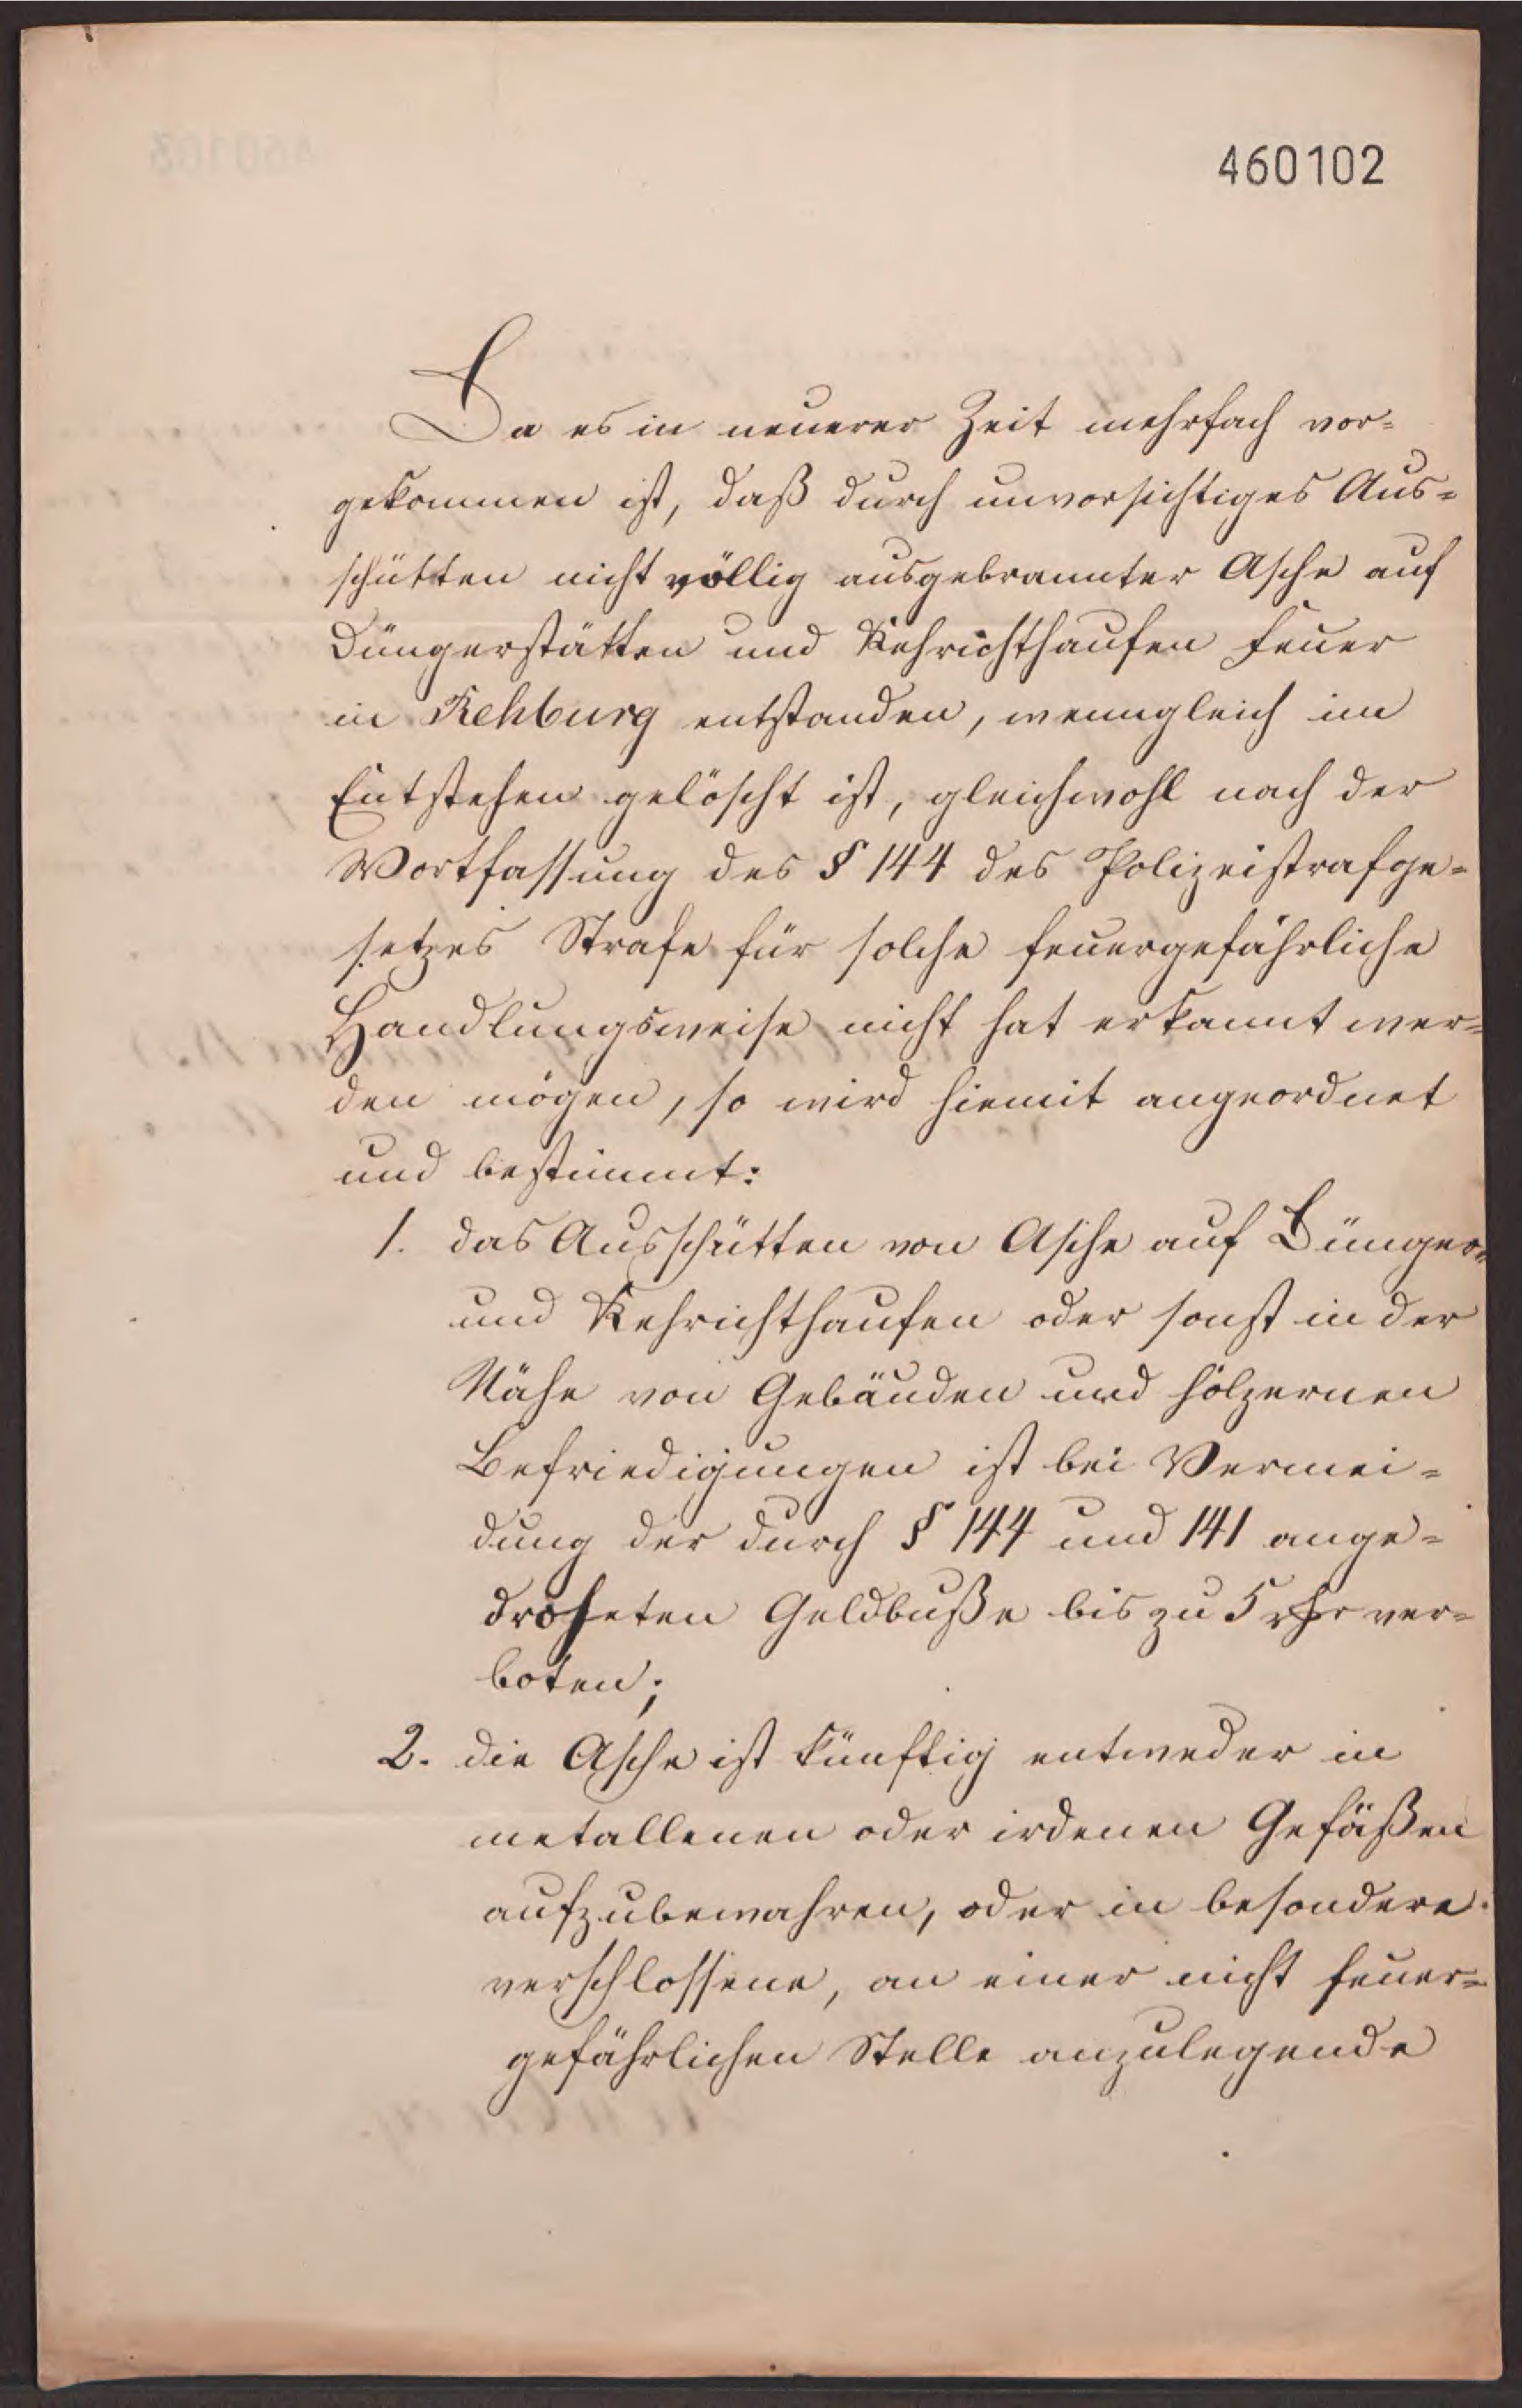 460102
Da es in neuerer Zeit mehrfach vor=
gekommen ist, daß durch unvorsichtiges Aus=
schütten nicht völlig ausgebrannter Asche auf
Düngerstätten und Kehrichthaufen Feuer
in Rehburg entstanden, wenngleich im
Entstehen gelöscht ist, gleichwohl nach der
Wortfassung des § 144 des Polizeistrafge=
setzes Strafe für solche feuergefährliche
Handlungsweise nicht hat erkannt wer=
den mögen, so wird hiemit angeordnet
und bestimmt:
1. das Ausschütten von Asche auf Dünger=
und Kehrichthaufen oder sonst in der
Nähe von Gebäuden und hölzernen
Befriedigungen ist bei Vermei=
dung der durch § 144 und 141 ange=
droheten Geldbuße bis zu 5 rthr ver=
boten;
2. die Asche ist künftig entweder in
metallenen oder irdenen Gefäßen
aufzubewahren, oder in besondere
verschlossene, an einer nicht feuer=
gefährlichen Stelle anzulegende